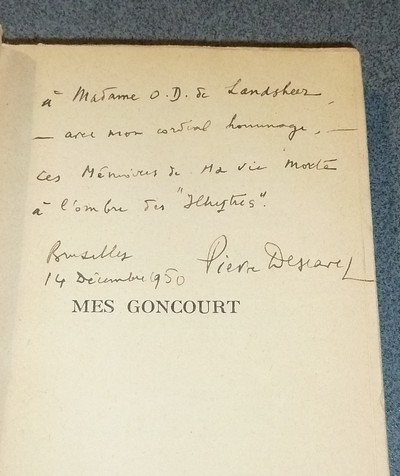 à Madame O. D. de Landsheer,
— avec mon cordial hommage, —
ces Mémoires de Ma vie
à l'ombre des "Illustres".
Bruxelles
14 Décembre 1950
Pierre Descaves
MES GONCOURT